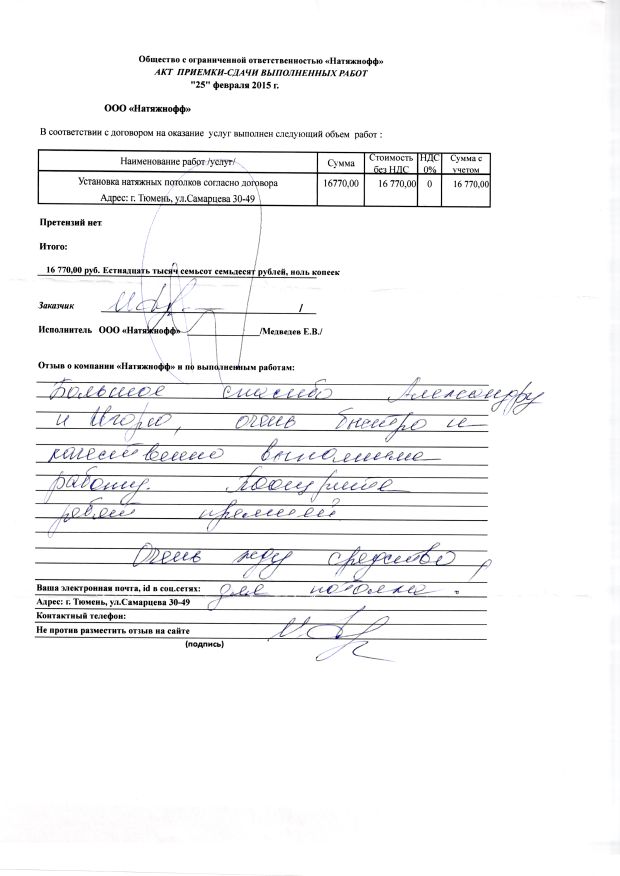 Общество с ограниченной ответственностью «Натяжнофф»
АКТ ПРИЕМКИ-СДАЧИ ВЫПОЛНЕННЫХ РАБОТ
"25" февраля 2015 г.
ООО «Натяжнофф»
В соответствии с договором на оказание услуг выполнен следующий объем работ :
Наименование работ /услуг/ Сумма Стоимость без НДС НДС 0% Сумма с учетом
Установка натяжных потолков согласно договора 16770,00 16 770,00 0 16 770,00
Адрес: г. Тюмень, ул.Самарцева 30-49
Претензий нет
Итого:
16 770,00 руб. Естнадцать тысяч семьсот семьдесят рублей, ноль копеек
Заказчик /
Исполнитель ООО «Натяжнофф» /Медведев Е.В./
Отзыв о компании «Натяжнофф» и по выполненным работам:
Большое спасибо Александру
и Игорю, очень быстро и
качественно выполнили
работу. Поощрите
ребят премией.
Очень жду средство,
для потолка.
Ваша электронная почта, id в соц.сетях:
Адрес: г. Тюмень, ул.Самарцева 30-49
Контактный телефон:
Не против разместить отзыв на сайте
(подпись)